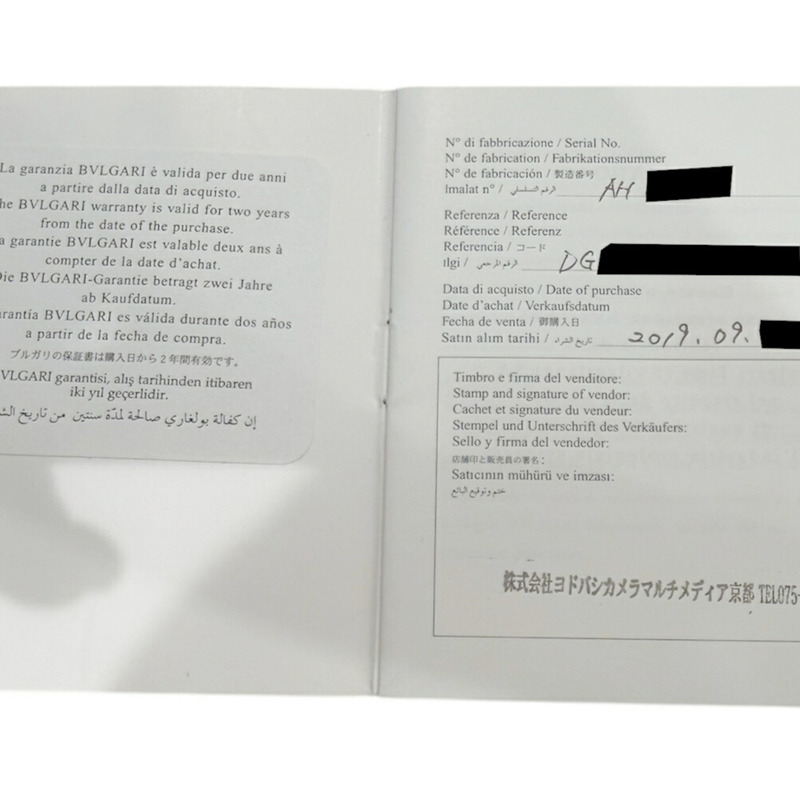 La garanzia BVLGARI è valida per due anni
a partire dalla data di acquisto.
he BVLGARI warranty is valid for two years
from the date of the purchase.
a garantie BVLGARI est valable deux ans à
compter de la date d'achat.
Die BVLGARI-Garantie betragt zwei Jahre
ab Kaufdatum.
arantía BVLGARI es válida durante dos años
a partir de la fecha de compra.
ブルガリの保証書は購入日から2年間有効です。
VLGARI garantisi, alış tarihinden itibaren
iki yıl geçerlidir.
إن كفالة بولغاري صالحة لمدّة سنتين من تاريخ الش
N° di fabbricazione / Serial No.
N° de fabrication / Fabrikationsnummer
N° de fabricación / 製造番号
Imalat n° / الرقم التسلسلي AH
Referenza / Reference
Référence / Referenz
Referencia / コード
Ilgi / الرقم المرجعي DG
Data di acquisto / Date of purchase
Date d'achat / Verkaufsdatum
Fecha de venta / 御購入日
Satın alım tarihi / تاريخ الشراء 2019.09.
Timbro e firma del venditore:
Stamp and signature of vendor:
Cachet et signature du vendeur:
Stempel und Unterschrift des Verkäufers:
Sello y firma del vendedor:
店舗印と販売員の署名:
Satıcının mühürü ve imzası:
ختم وتوقيع البائع
株式会社ヨドバシカメラマルチメディア京都 TEL075-